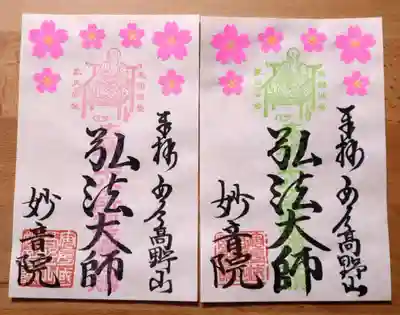 奉拝 女人高野山
弘法大師
妙音院
奉拝 女人高野山
弘法大師
妙音院